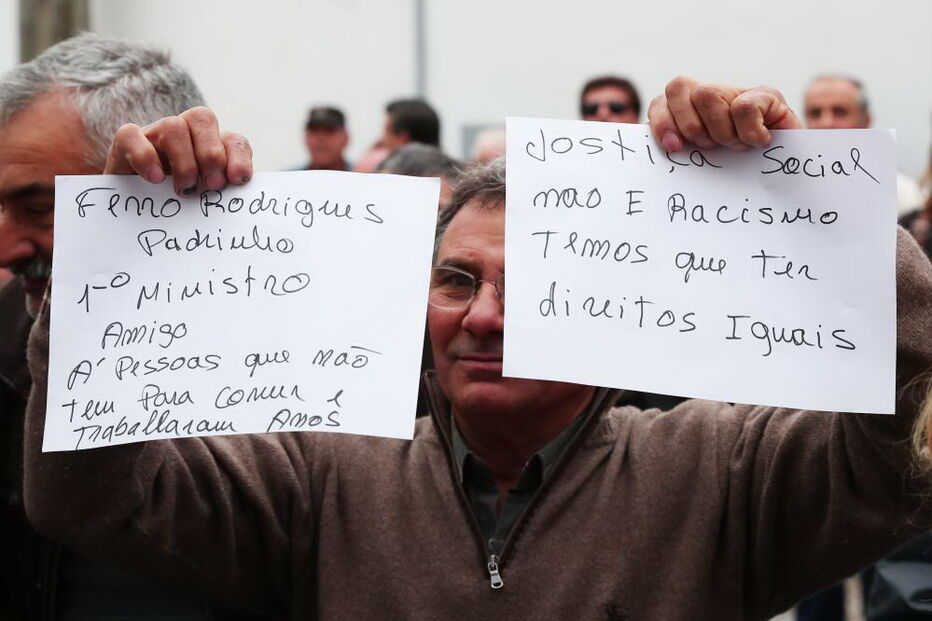 Ferro Rodrigues
Padrinho
1º Ministro
Amigo
A' Pessoas que não
tem Para comer e
Traballaram Anos
Jostiça Social
mao E Racismo
Temos que Ter
direitos Iguais